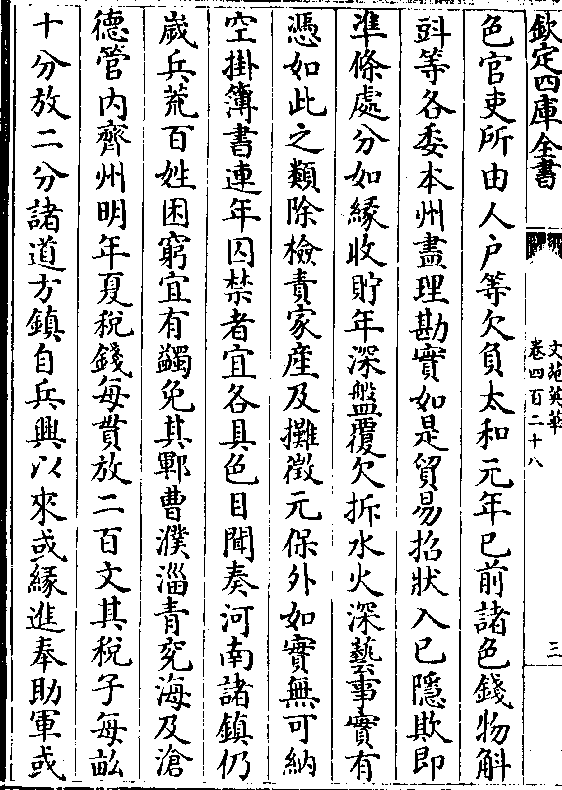 欽定四庫全書
文苑英華
卷四百二十八
三
色官吏所由人户等欠負太和元年已前諸色錢物斛
㪷等各委本州盡理勘實如是貿易招狀入已隱欺即
準條處分如緣收貯年深盤覆欠折水火深藝事實有
憑如此之類除檢責家產及攤徵元保外如實無可納
空掛簿書連年囚禁者宜各具色目聞奏河南諸鎮仍
嵗兵荒百姓困窮宜有蠲免其鄆曹濮淄青兖海及滄
德管内齊州明年夏稅錢每貫放二百文其稅子每畝
十分放二分諸道方鎮自兵興以來或緣進奉助軍或